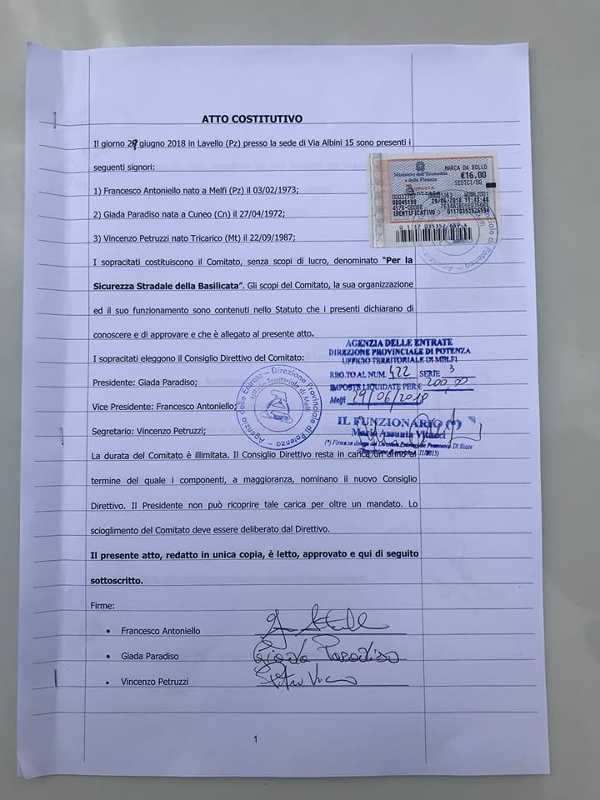 ATTO COSTITUTIVO
Il giorno 29 giugno 2018 in Lavello (Pz) presso la sede di Via Albini 15 sono presenti i
seguenti signori:
1) Francesco Antoniello nato a Melfi (Pz) il 03/02/1973;
2) Giada Paradiso nata a Cuneo (Cn) il 27/04/1972;
3) Vincenzo Petruzzi nato Tricarico (Mt) il 22/09/1987;
MARCA DA BOLLO
Ministero dell'Economia
e delle Finanze
€16,00
SEDICI/00
IDENTIFICATIVO
I sopracitati costituiscono il Comitato, senza scopi di lucro, denominato "Per la
Sicurezza Stradale della Basilicata". Gli scopi del Comitato, la sua organizzazione
ed il suo funzionamento sono contenuti nello Statuto che i presenti dichiarano di
conoscere e di approvare e che è allegato al presente atto.
I sopracitati eleggono il Consiglio Direttivo del Comitato:
Presidente: Giada Paradiso;
Vice Presidente: Francesco Antoniello;
Segretario: Vincenzo Petruzzi;
AGENZIA DELLE ENTRATE
DIREZIONE PROVINCIALE DI POTENZA
UFFICIO TERRITORIALE DI MELFI
REG.TO AL NUM. 422 SERIE 3
IMPOSTE LIQUIDATE PER € 200,00
Melfi 29/06/2018
IL FUNZIONARIO (*)
Agenzia delle Entrate - Direzione Provinciale di Potenza
La durata del Comitato è illimitata. Il Consiglio Direttivo resta in carica un anno al
termine del quale i componenti, a maggioranza, nominano il nuovo Consiglio
Direttivo. Il Presidente non può ricoprire tale carica per oltre un mandato. Lo
scioglimento del Comitato deve essere deliberato dal Direttivo.
Il presente atto, redatto in unica copia, è letto, approvato e qui di seguito
sottoscritto.
Firme:
• Francesco Antoniello
• Giada Paradiso Giada Paradiso
• Vincenzo Petruzzi
1